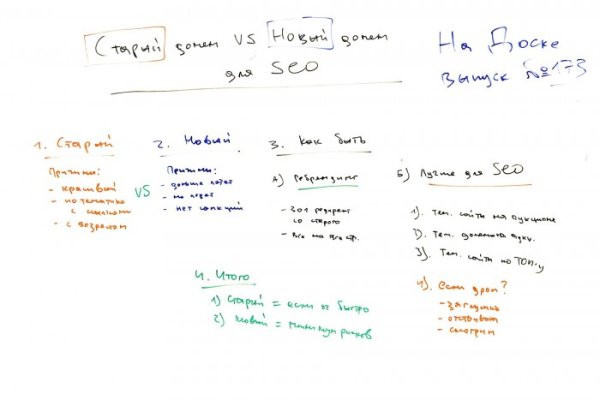 Старый домен VS Новый домен
для SEO
На Доске
выпуск №173
1. Старый
Причины:
- красивый
- по тематике
с ссылками
- с возрастом
VS
2. Новый
Причины:
- дольше
- не
- нет санкций
3. Как быть
А) Ребрендинг
- 301 редирект
со старого
- все на все стр.
Б) Лучше для SEO
1). Тем. сайты на аукционе
2). Тем. домена аукц.
3). Тем. сайты по ТОП-у
4). Если дроп?
- заглушка
- отстаивать
- смотрим
4. Итого
1) Старый = если ок быстро
2) Новый = минимум рисков